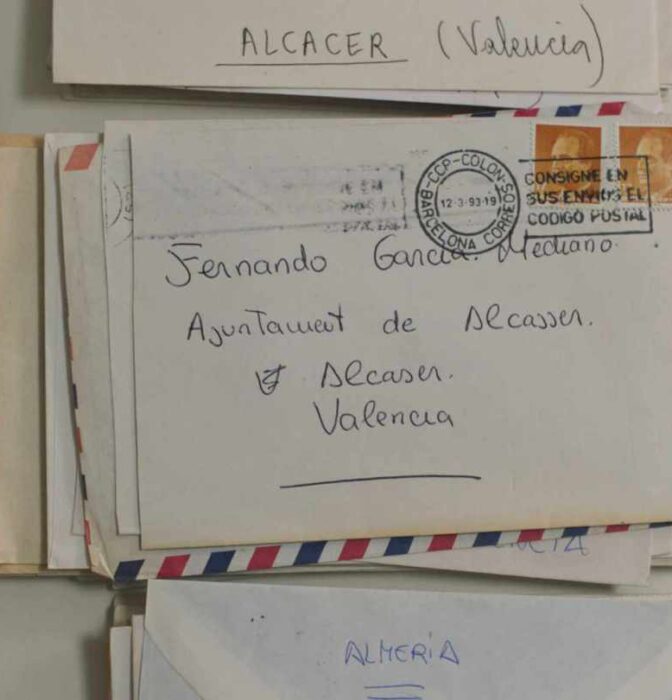 ALCACER (Valencia)
BARCELONA CORREOS
CCP-COLON
12-3-93-19
CONSIGNE EN
SUS ENVIOS EL
CODIGO POSTAL
Fernando Garcia Mediano
Ajuntament de Alcasser.
Alcaser.
Valencia
ALMERÍA